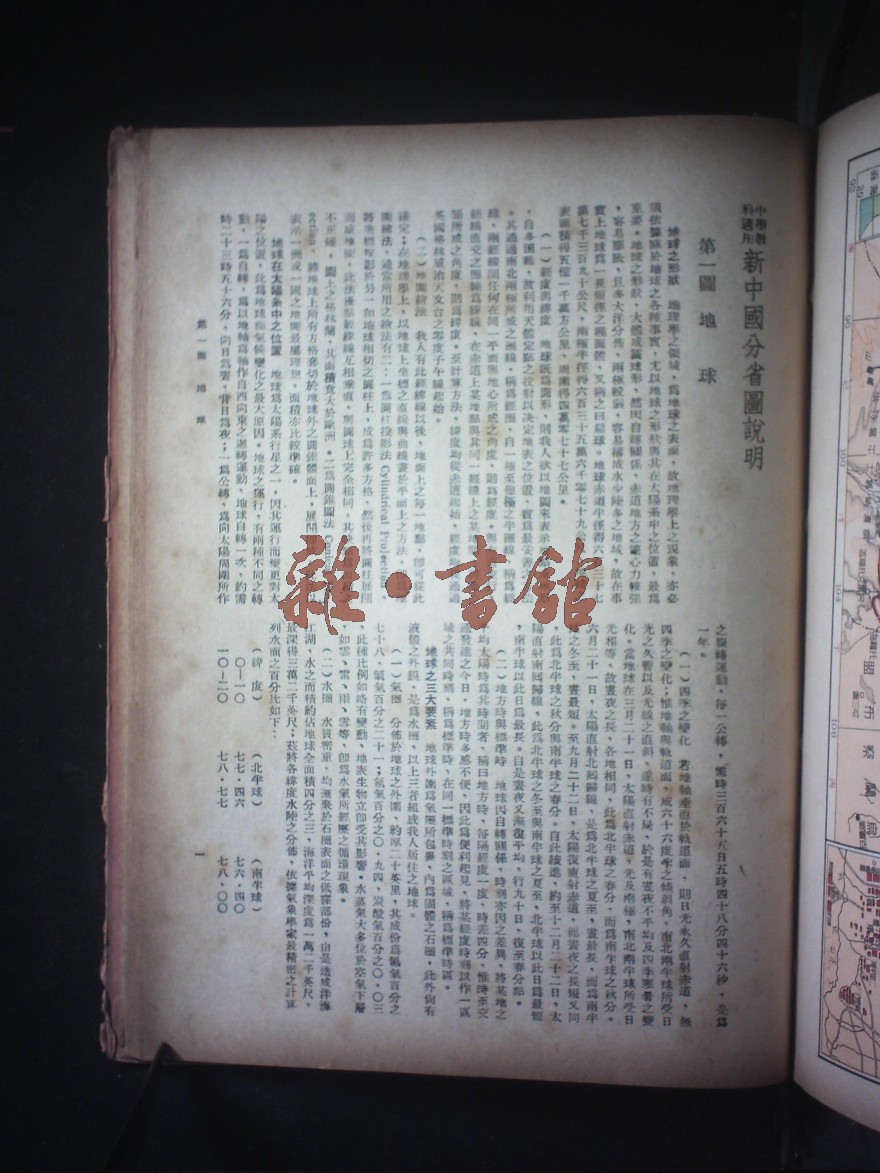 中學教
科適用
新中國分省圖說明
第一圖 地球
地球之形狀 地理學之領域，爲地球之表面，故地理學上之現象，亦必
須依據關於地球之各種事實，尤以地球之形狀與其在太陽系中之位置，最爲
重要。地球之形狀，大體成圓球形，然因自轉關係，赤道地方之離心力較強
，容易膨脹，且多大洋分佈，兩極較弱，容易積成水少陸多之地域，故在事
實上地球爲一長短徑之橢圓體，又稱之曰扁球。地球赤道半徑得六
三十七
萬七千三百九十公尺，兩極半徑得六百三十五萬六千零七十九公
表面積得五億一千萬方公里，周圍得四萬零七十七公里。
（一）經度與緯度 地球既爲圓形，則我人欲以地圖來表示
，自多困難，故利用天體定點之投射以決定地表之位置，實爲最妥善
法
。其通過南北兩極所成之圈線，稱爲經圈，自一極至他極之半圈線，稱爲
線，兩經線間任何在同一平面與地心所成之角度，則爲經度。與
經線直交之圈線爲緯線，在赤道上某地點與其同一經線上之某地
圈所成之角度，則爲緯度。至計算方法，緯度均從赤道起始，經度均以通過
英國格林威治天文台之零度子午線起始。
（二）地圖繪法 我人有此經緯線以後，地面上之每一地點，卽可從此
確定；在地理學上，以地球上坐標之直線與曲線畫於平面上之方法，稱爲地
圖繪法。通常所用之繪法有二：一爲圓柱投影法Cylindrical Projection，
將坐標投影於另一和地球相切之圓柱上，成爲許多方格，然後再將圓柱展開
而成地圖，此法優點經緯線互相垂直，與圓球上完全相同，其
不正確，圖上之格林蘭，其面積竟大於歐洲。二爲圓錐圖法Conic
ection，將地球上所有方格套切於地球外之圓錐體面上，展開
表示一洲或一國之地圖最屬理想，面積亦比較準確。
地球在太陽系中之位置 地球爲太陽系行星之一，因其運行而變更對太
陽之位置，此爲地球面氣候變化之最大原因。地球之運行，有兩種不同之轉
動，一爲自轉，爲以地軸爲軸作自西向東之迴轉運動，地球自轉一次，約需
時二十三時五十六分，向日爲晝，背日爲夜；一爲公轉，爲向太陽周圍所作
之旋轉運動，每一公轉，需時三百六十五日五時四十八分四十六秒，是爲
一年。
（一）四季之變化 若地軸垂直於軌道面，則日光永久直射赤道，無
四季之變化；惟地軸與軌道面，成六十六度半之傾斜角，南北兩半球所受日
光之久暫以及光線之直斜，遂時有不同，於是有晝夜不平均及四季寒暑之變
化。當地球在三月二十一日，太陽直射赤道，光及兩極，南北兩半球所受日
光相等，故晝夜之長，各地相同，此爲北半球之春分，而爲南半球之秋分。
六月二十一日，太陽直射北回歸線，是爲北半球之夏至，晝最長，而爲南半
球之冬至，晝最短。至九月二十二日，太陽復直射赤道，而晝夜之長短又同
，此爲北半球之秋分與南半球之春分。自此後進，約至十二月二十二日，太
陽直射南回歸線，此爲北半球之冬至與南半球之夏至，北半球以此日爲最短
，南半球以此日爲最長。自是晝夜又漸復平均，行九十日，復至春分點。
（二）地方時與標準時 地球因自轉關係，時刻亦因之差異，將某地之
平均太陽時爲其時間者，稱曰地方時，每隔經度一度，時差四分，惟時至交
通發達之今日，地方時多感不便，因此爲便利起見，將某經度時刻以作一區
域之共同時刻，稱爲標準時，在同一標準時刻之區域，稱爲標準時區。
地球之三大要素 地球外圍爲氣圈所包裹，內爲固體之石圈，此外尙有
液體之外膜，是爲水圈，以上三者組成我人居住之地球。
（一）氣圈 分佈於地球之外圍，約厚二十英里，其成份爲氮氣百分之
七十八，氧氣百分之二十一；氬氣百分之〇・九四，炭酸氣百分之〇・〇三
，此種比例如略有變動，地表生物立卽受其影響。水蒸氣大多位於空氣下層
，如雲、雷、雨、雪等，卽爲水氣所經歷之循環現象。
（二）水圈 水質密重，均滙聚於石圈表面之低窪部份，由是造成洋海
江湖，水之面積約佔地球全面積四分之三，海洋平均深度爲一萬二千英尺，
最深得三萬二千英尺；茲將各緯度水陸之分佈，依據氣象學家最精密之計算
列水面之百分比如下：
（緯度） （北半球） （南半球）
〇—一〇 七七・四六 七六・四〇
一〇—二〇 七八・七七 七八・〇〇
第一圖 地球
一
雜・書館